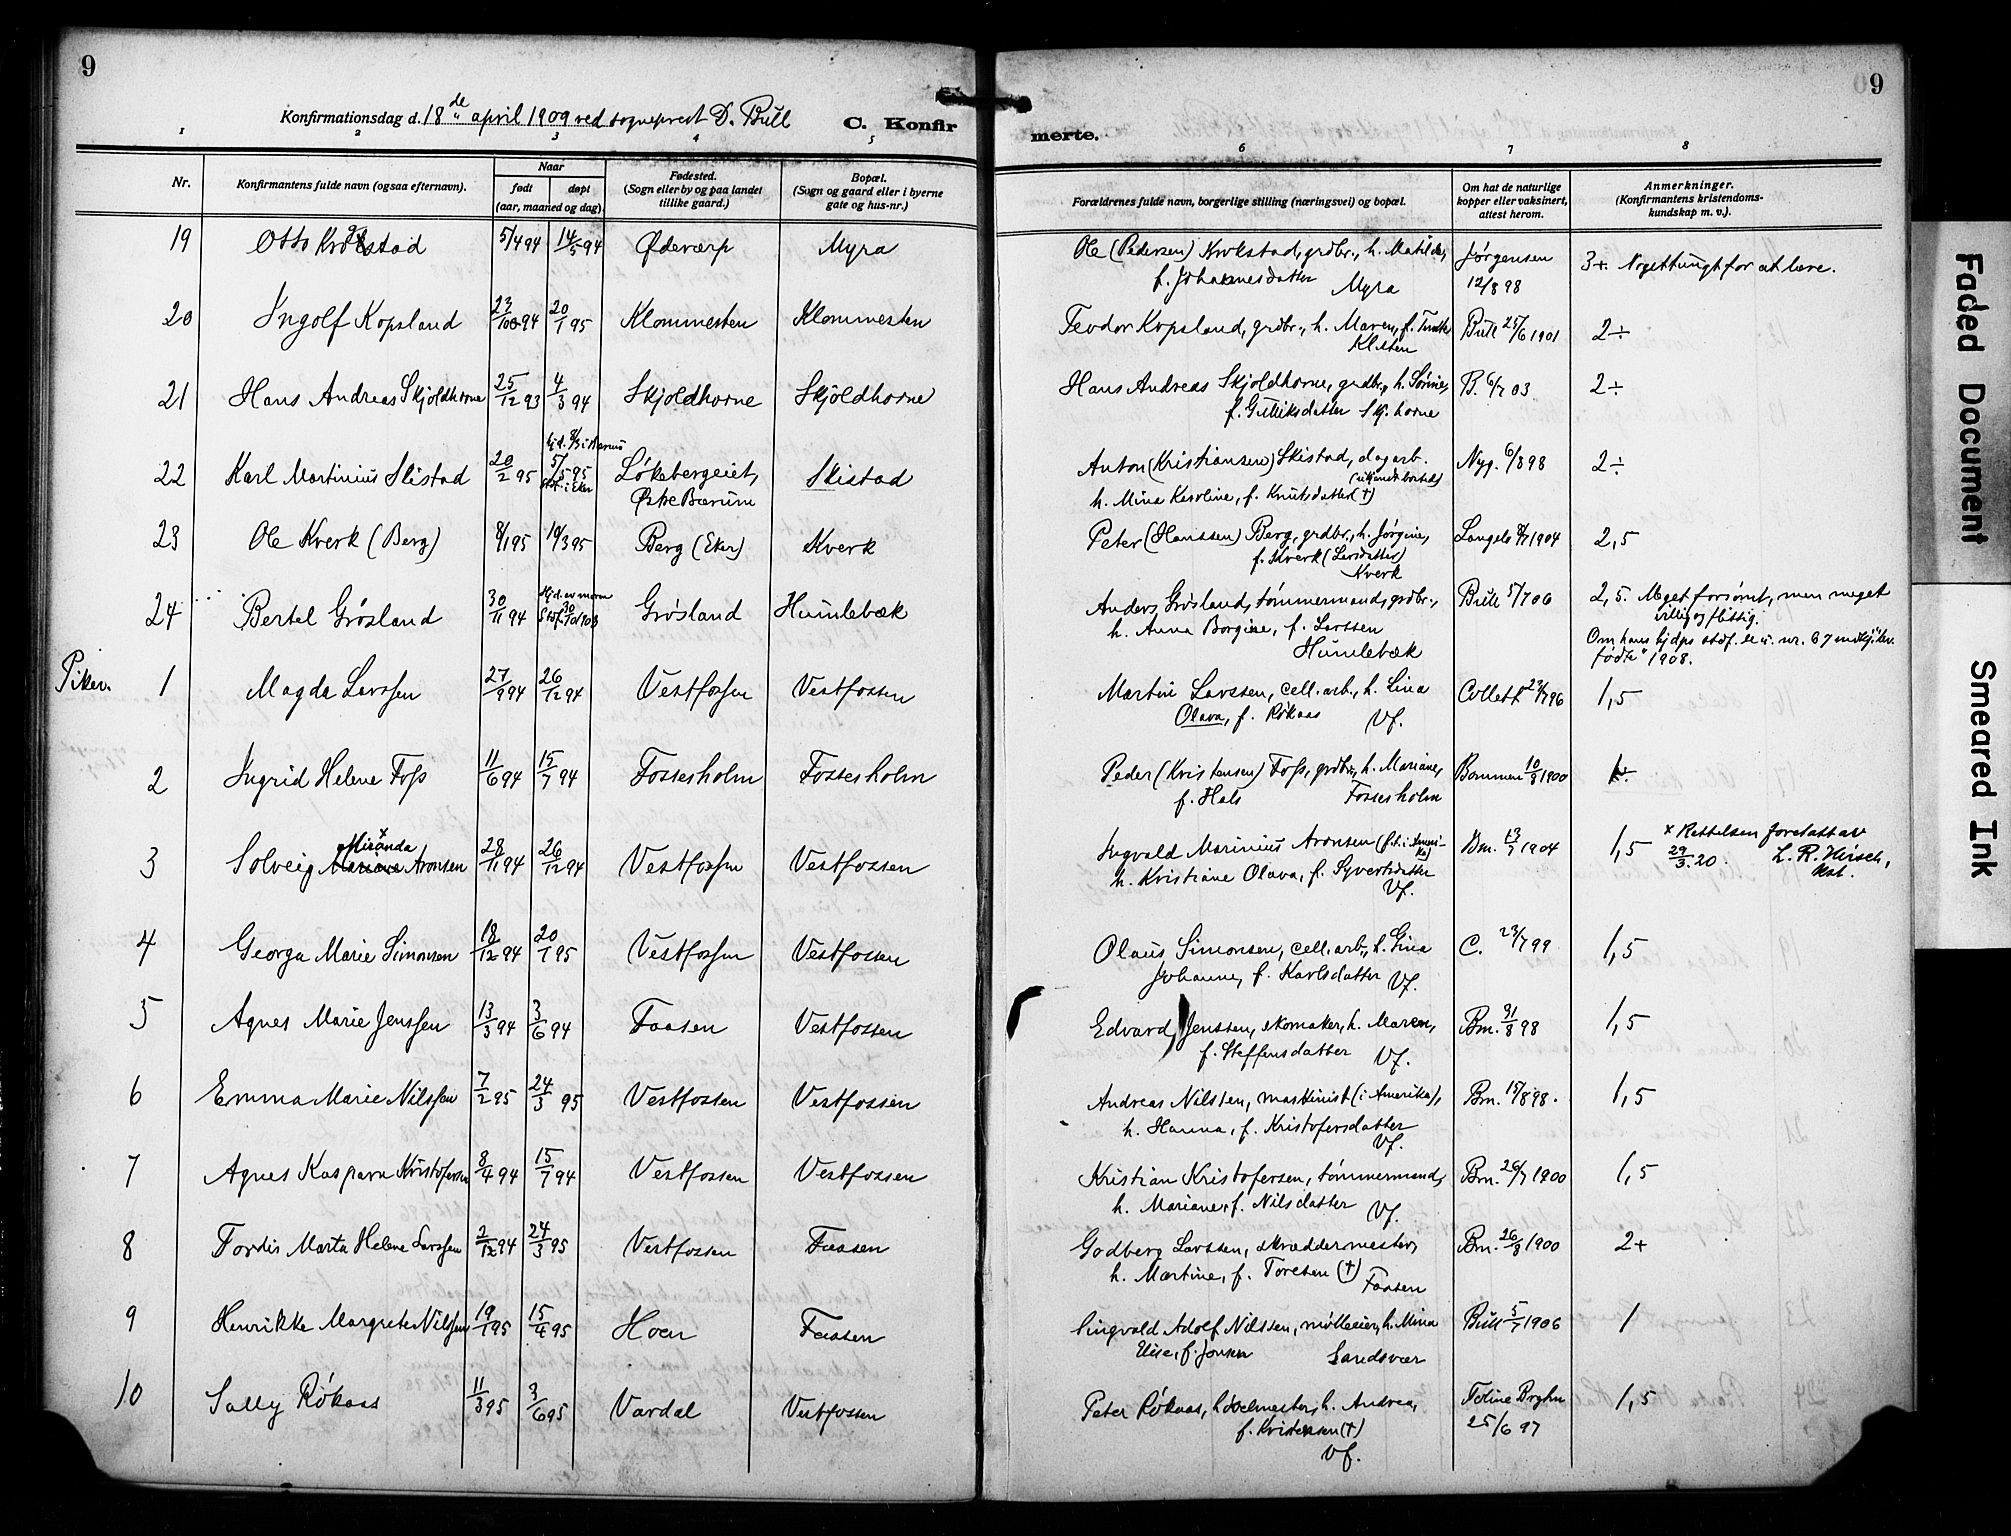 9
Konfirmationsdag d. 18de april 1909 ved sogneprest D. Bull
C. Konfir
1 2 3 4 5
Nr.
Konfirmantens fulde navn (ogsaa efternavn).
Naar
født døpt
(aar, maaned og dag).
Fødested.
(Sogn eller by og paa landet
tillike gaard.)
Bopæl.
(Sogn og gaard eller i byerne
gate og hus-nr.)
9
merte.
6 7 8
Forældrenes fulde navn, borgerlige stilling (næringsvei) og bopæl.
Om hat de naturlige
kopper eller vaksinert,
attest herom.
Anmerkninger.
(Konfirmantens kristendoms-
kundskap m. v.)
19 Otto Krokstad 5/4 94 14/5 94 Ødeværp Myra Ole (Pedersen) Krokstad, grdbr., h. Matilde, Jørgensen 3+. Noget tungt for at lære.
f. Johannesdatter Myra 12/8 98
20 Ingolf Kopsland 23/10 94 20/1 95 Klommesten Klommesten Teodor Kopsland, grdbr., h. Maren, f. Bull 25/6 1901 2÷
Kl.sten
21 Hans Andreas Skjoldhorne 25/12 93 4/3 94 Skjoldhorne Skjøldhorne Hans Andreas Skjoldhorne, grdbr., h. B. 6/7 03 2÷
f. Gulliksdatter Skj. horne
22 Karl Martinius Skistad 20/2 95 5/5 95 Løkebergeiet, Skistad Anton (Kristiansen) Skistad, dagarb. Nyg. 6/8 98 2÷
stdf. i Eker Østre Bærum h. Mina Karoline, f. Knutsdatter (†)
23 Ole Kverk (Berg) 8/1 95 10/3 95 Berg (Eker) Kverk Peter (Hanssen) Berg, grdbr., h. Jørgine, 1904 2,5
f. Kverk (Larsdatter)
Kverk
24 Bertel Grøsland 30/11 94 Grøsland Humlebæk Anders Grøsland, tømmermand, grdbr., Bull 5/7 06 2,5. Meget forsømt, men meget
h. Anna Borgine, f. Larssen villig og flittig.
Humlebæk Om hans hjdp. stdf. se u. nr. 67
"fødte" 1908.
Piker. 1 Magda Larssen 27/9 94 26/12 94 Vestfossen Vestfossen Martin Larssen, cell. arb., h. Lina Collett 96 1,5
Olava, f. Røkaas Vf.
2 Ingrid Helene Foss 11/6 94 15/7 94 Fossesholm Fossesholm Peder (Kristensen) Foss, grdbr., h. Mariane, 10/8 1900 1÷
f. Hals Fossesholm
3 Solveig Mariane x Miranda Aronsen 28/11 94 26/12 94 Vestfossen Vestfossen Ingvald Marinius Aronsen Bm. 13/7 1904 1,5 x Rettelsen foretatt av
h. Kristiane Olava, f. Syvertsdatter 29/3.20. L. R. Hirsch,
Vf. kat.
4 Georga Marie Simonsen 18/12 94 20/1 95 Vestfossen Vestfossen Olaus Simonsen, cell. arb., h. Gina C. 23/7 99 1,5
Johanne, f. Karlsdatter Vf.
5 Agnes Marie Jenssen 13/3 94 3/6 94 Faasen Vestfossen Edvard Jenssen, skomaker, h. Maren, Bm. 31/8 98 1,5
f. Steffensdatter Vf.
6 Emma Marie Nilssen 7/2 95 24/3 95 Vestfossen Vestfossen Andreas Nilssen, maskinist (i Amerika), Bm. 15/8 98. 1,5
h. Hanna, f. Kristofersdatter
Vf.
7 Agnes Kaspara Kristofersen 8/4 94 15/7 94 Vestfossen Vestfossen Kristian Kristofersen, tømmermand, Bm. 26/7 1900 1,5
h. Mariane, f. Nilsdatter Vf.
8 Tordis Marta Helene Larssen 2/12 94 24/3 95 Vestfossen Faasen Godberg Larssen, skræddermester, Bm. 26/8 1900 2+
h. Martine, f. Toresen (†) Faasen
9 Henrikke Margrete Nilssen 19/1 95 15/4 95 Hoen Faasen Ingvald Adolf Nilssen, mølleeier, h. Mina Bull 5/7 1906 1
Elise, f. Jonsen Sandsvær
10 Sally Røkaas 11/3 95 3/6 95 Vardal Vestfossen Peter Røkaas, høvelmester, h. Andrea, 1,5
f. Kristensen (†) 25/6 97
Vf.
Faded Document
Smeared Ink